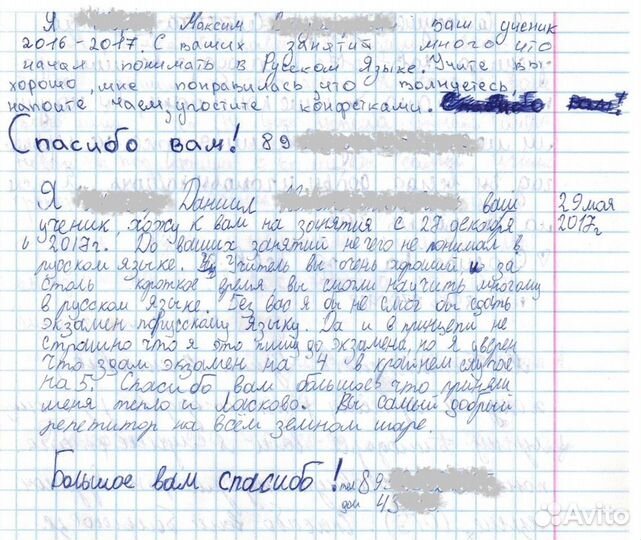 Я Максим ваш ученик
2016-2017. С ваших занятий много что
начал понимать в Русском Языке. Учите вы
хорошо, мне понравилась что волнуетесь,
напоите чаем, угостите конфетками. Спасибо вам!
Спасибо вам! 89
Я Даниил ваш
29 мая
ученик, хожу к вам на занятия с 27 декабря
2017г
2017г. До ваших занятий нечего не понимал в
русском языке. Учитель вы очень хороший и за
столь короткое время вы смогли научить многому
в русском языке. Без вас я бы не смог бы сдать
экзамен порусскому языку. Да и в принцепи не
страшно что я это пишу до экзамена, но я уверен
что здам экзамен на 4 в крайнем случае
на 5. Спасибо вам большое что приняли
меня тепло и ласково. Вы самый добрый
репетитор на всём земном шаре.
Большое вам спасибо! тел 89
дом 43
Avito